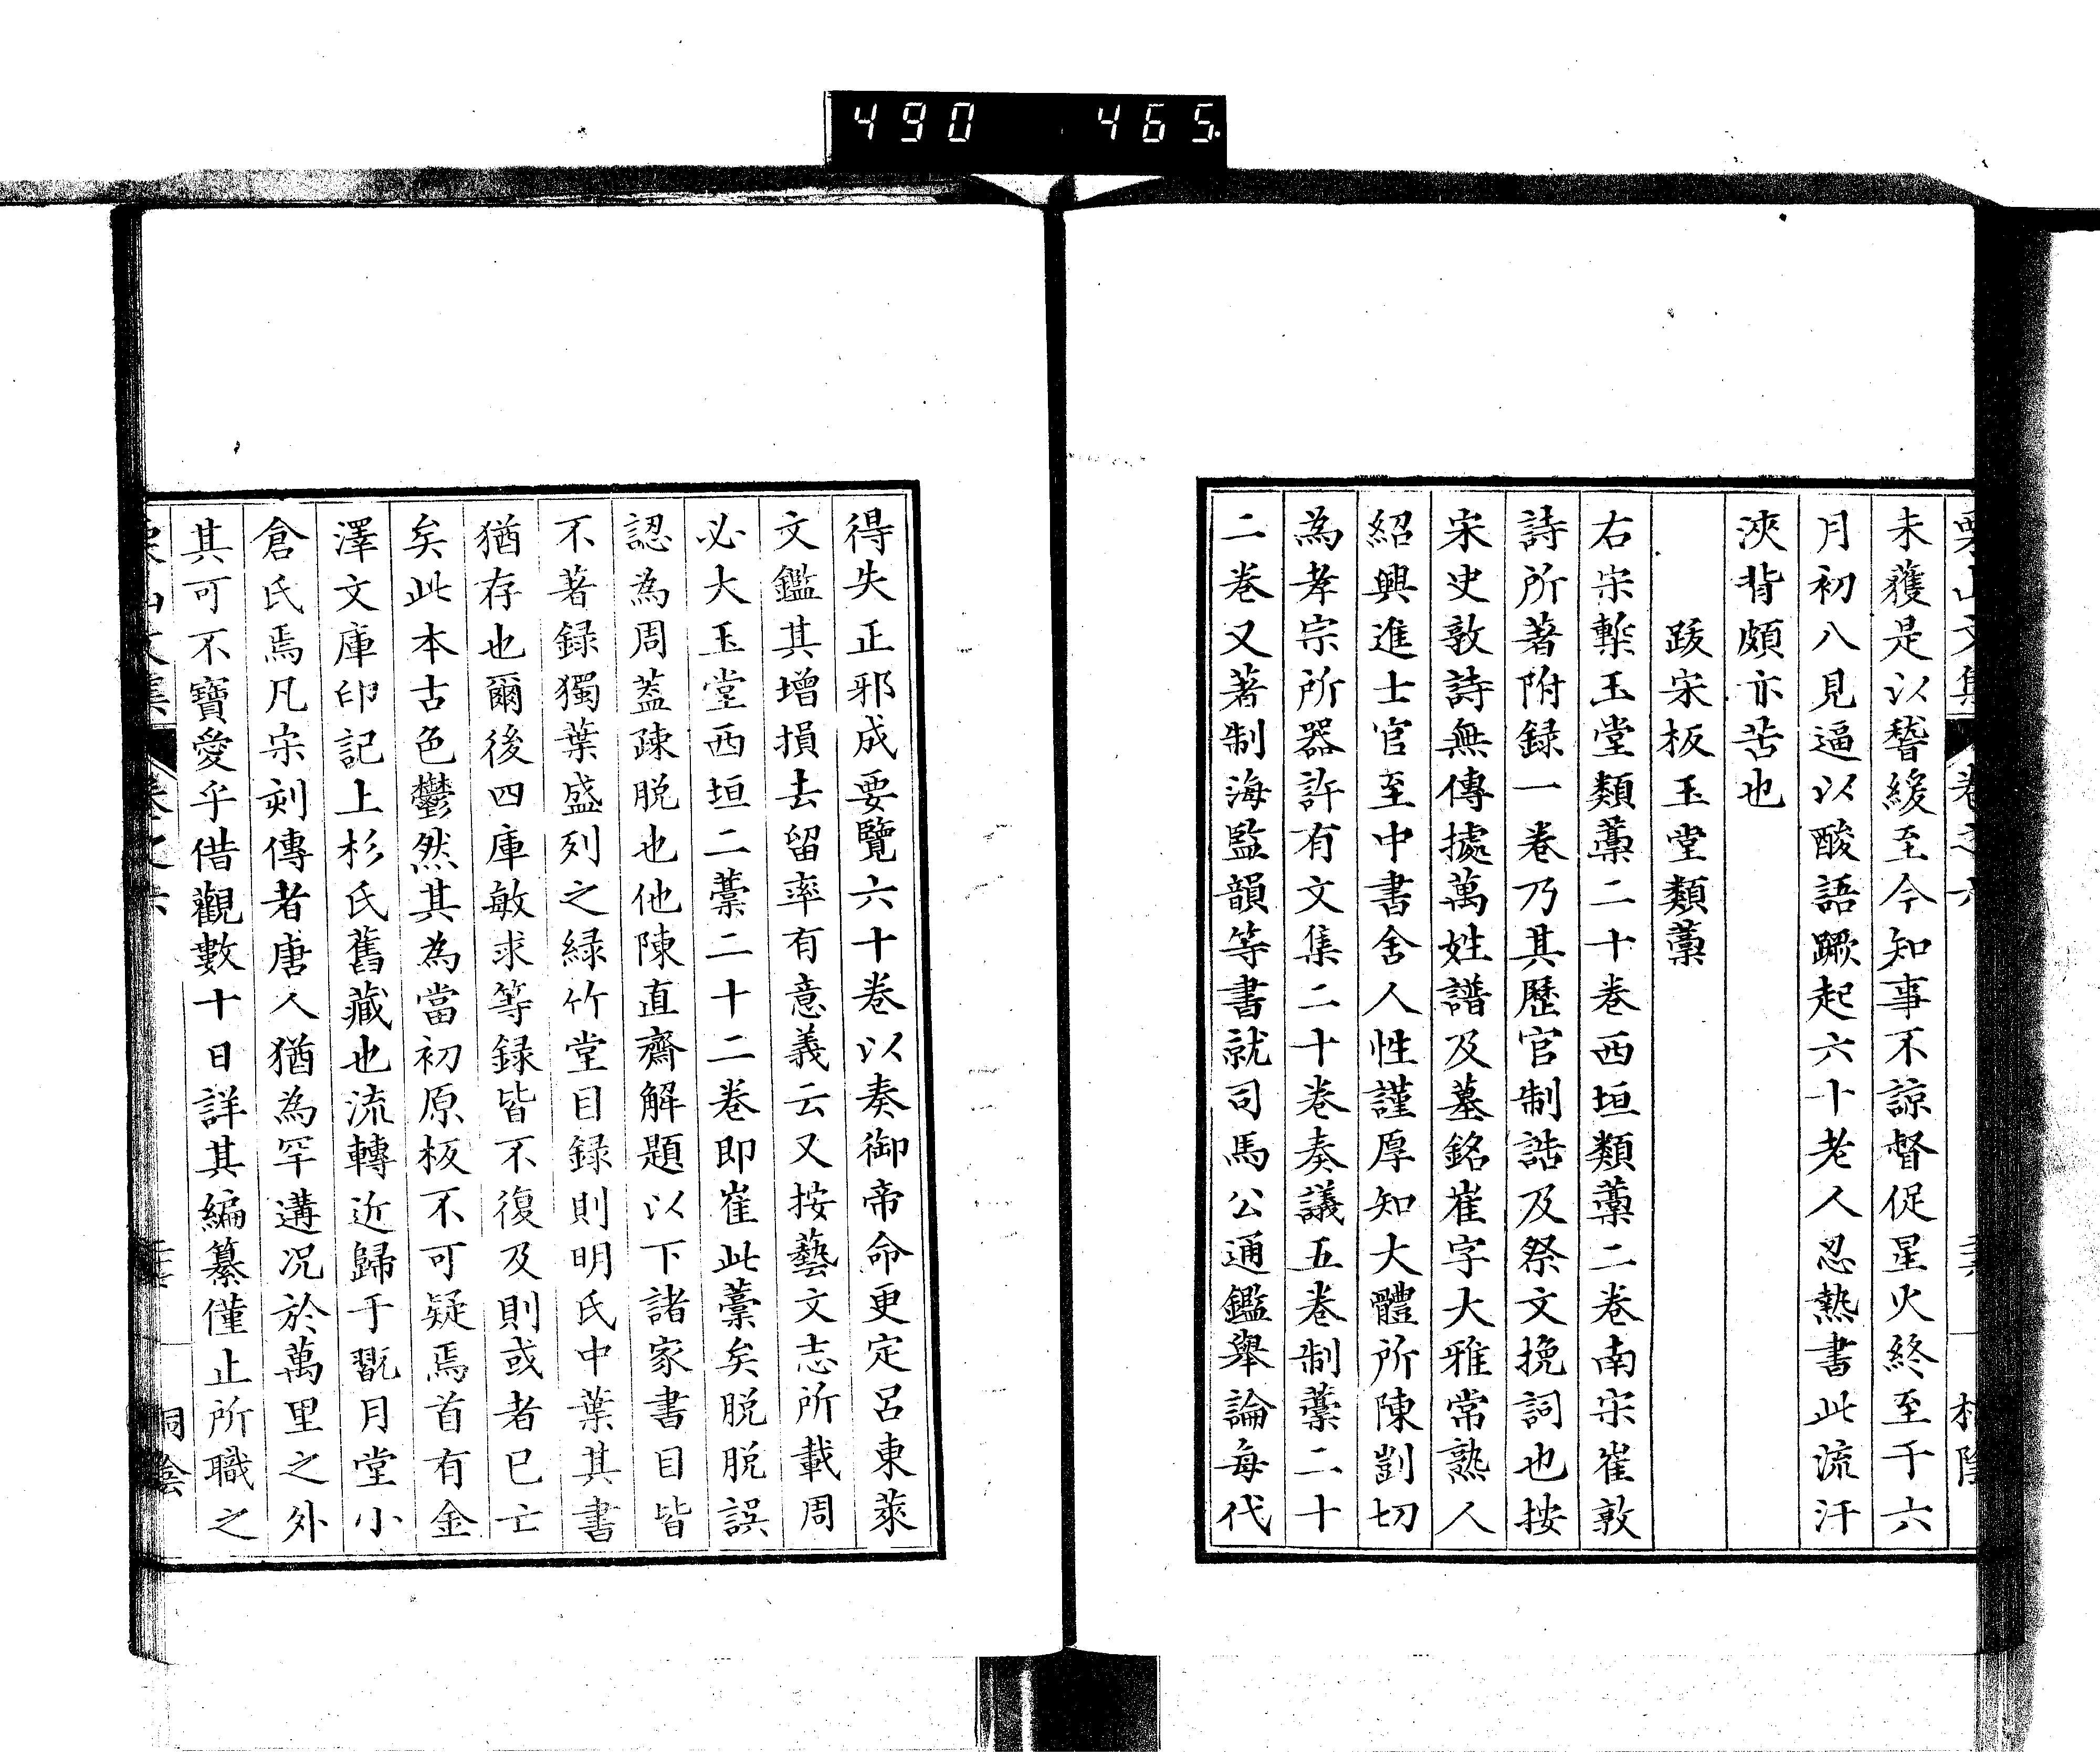 490 465
未獲是以稽緩至今知事不諒督促星火終至于六
月初八見逼以酸語蹶起六十老人忍熱書此流汗
浹背頗亦苦也
跋宋板玉堂類藁
右宋槧玉堂類藁二十卷西垣類藁二卷南宋崔敦
詩所著附録一卷乃其歷官制誥及祭文挽詞也按
宋史敦詩無傳據萬姓譜及墓銘崔字大雅常熟人
紹興進士官至中書舍人性謹厚知大體所陳剴切
為孝宗所器許有文集二十卷奏議五卷制藁二十
二卷又著制海監韻等書就司馬公通鑑舉論每代
得失正邪成要覽六十卷以奏御帝命更定呂東萊
文鑑其增損去留率有意義云又按藝文志所載周
必大玉堂西垣二藁二十二卷即崔此藁矣脱脱誤
認為周蓋疎脱也他陳直齋解題以下諸家書目皆
不著録獨葉盛列之緑竹堂目録則明氏中葉其書
猶存也爾後四庫敏求等録皆不復及則或者已亡
矣此本古色鬱然其為當初原板不可疑焉首有金
澤文庫印記上杉氏舊藏也流轉近歸于翫月堂小
倉氏焉凡宋刻傳者唐人猶為罕遘况於萬里之外
其可不寶愛乎借觀數十日詳其編纂僅止所職之
卷之六
桐陰